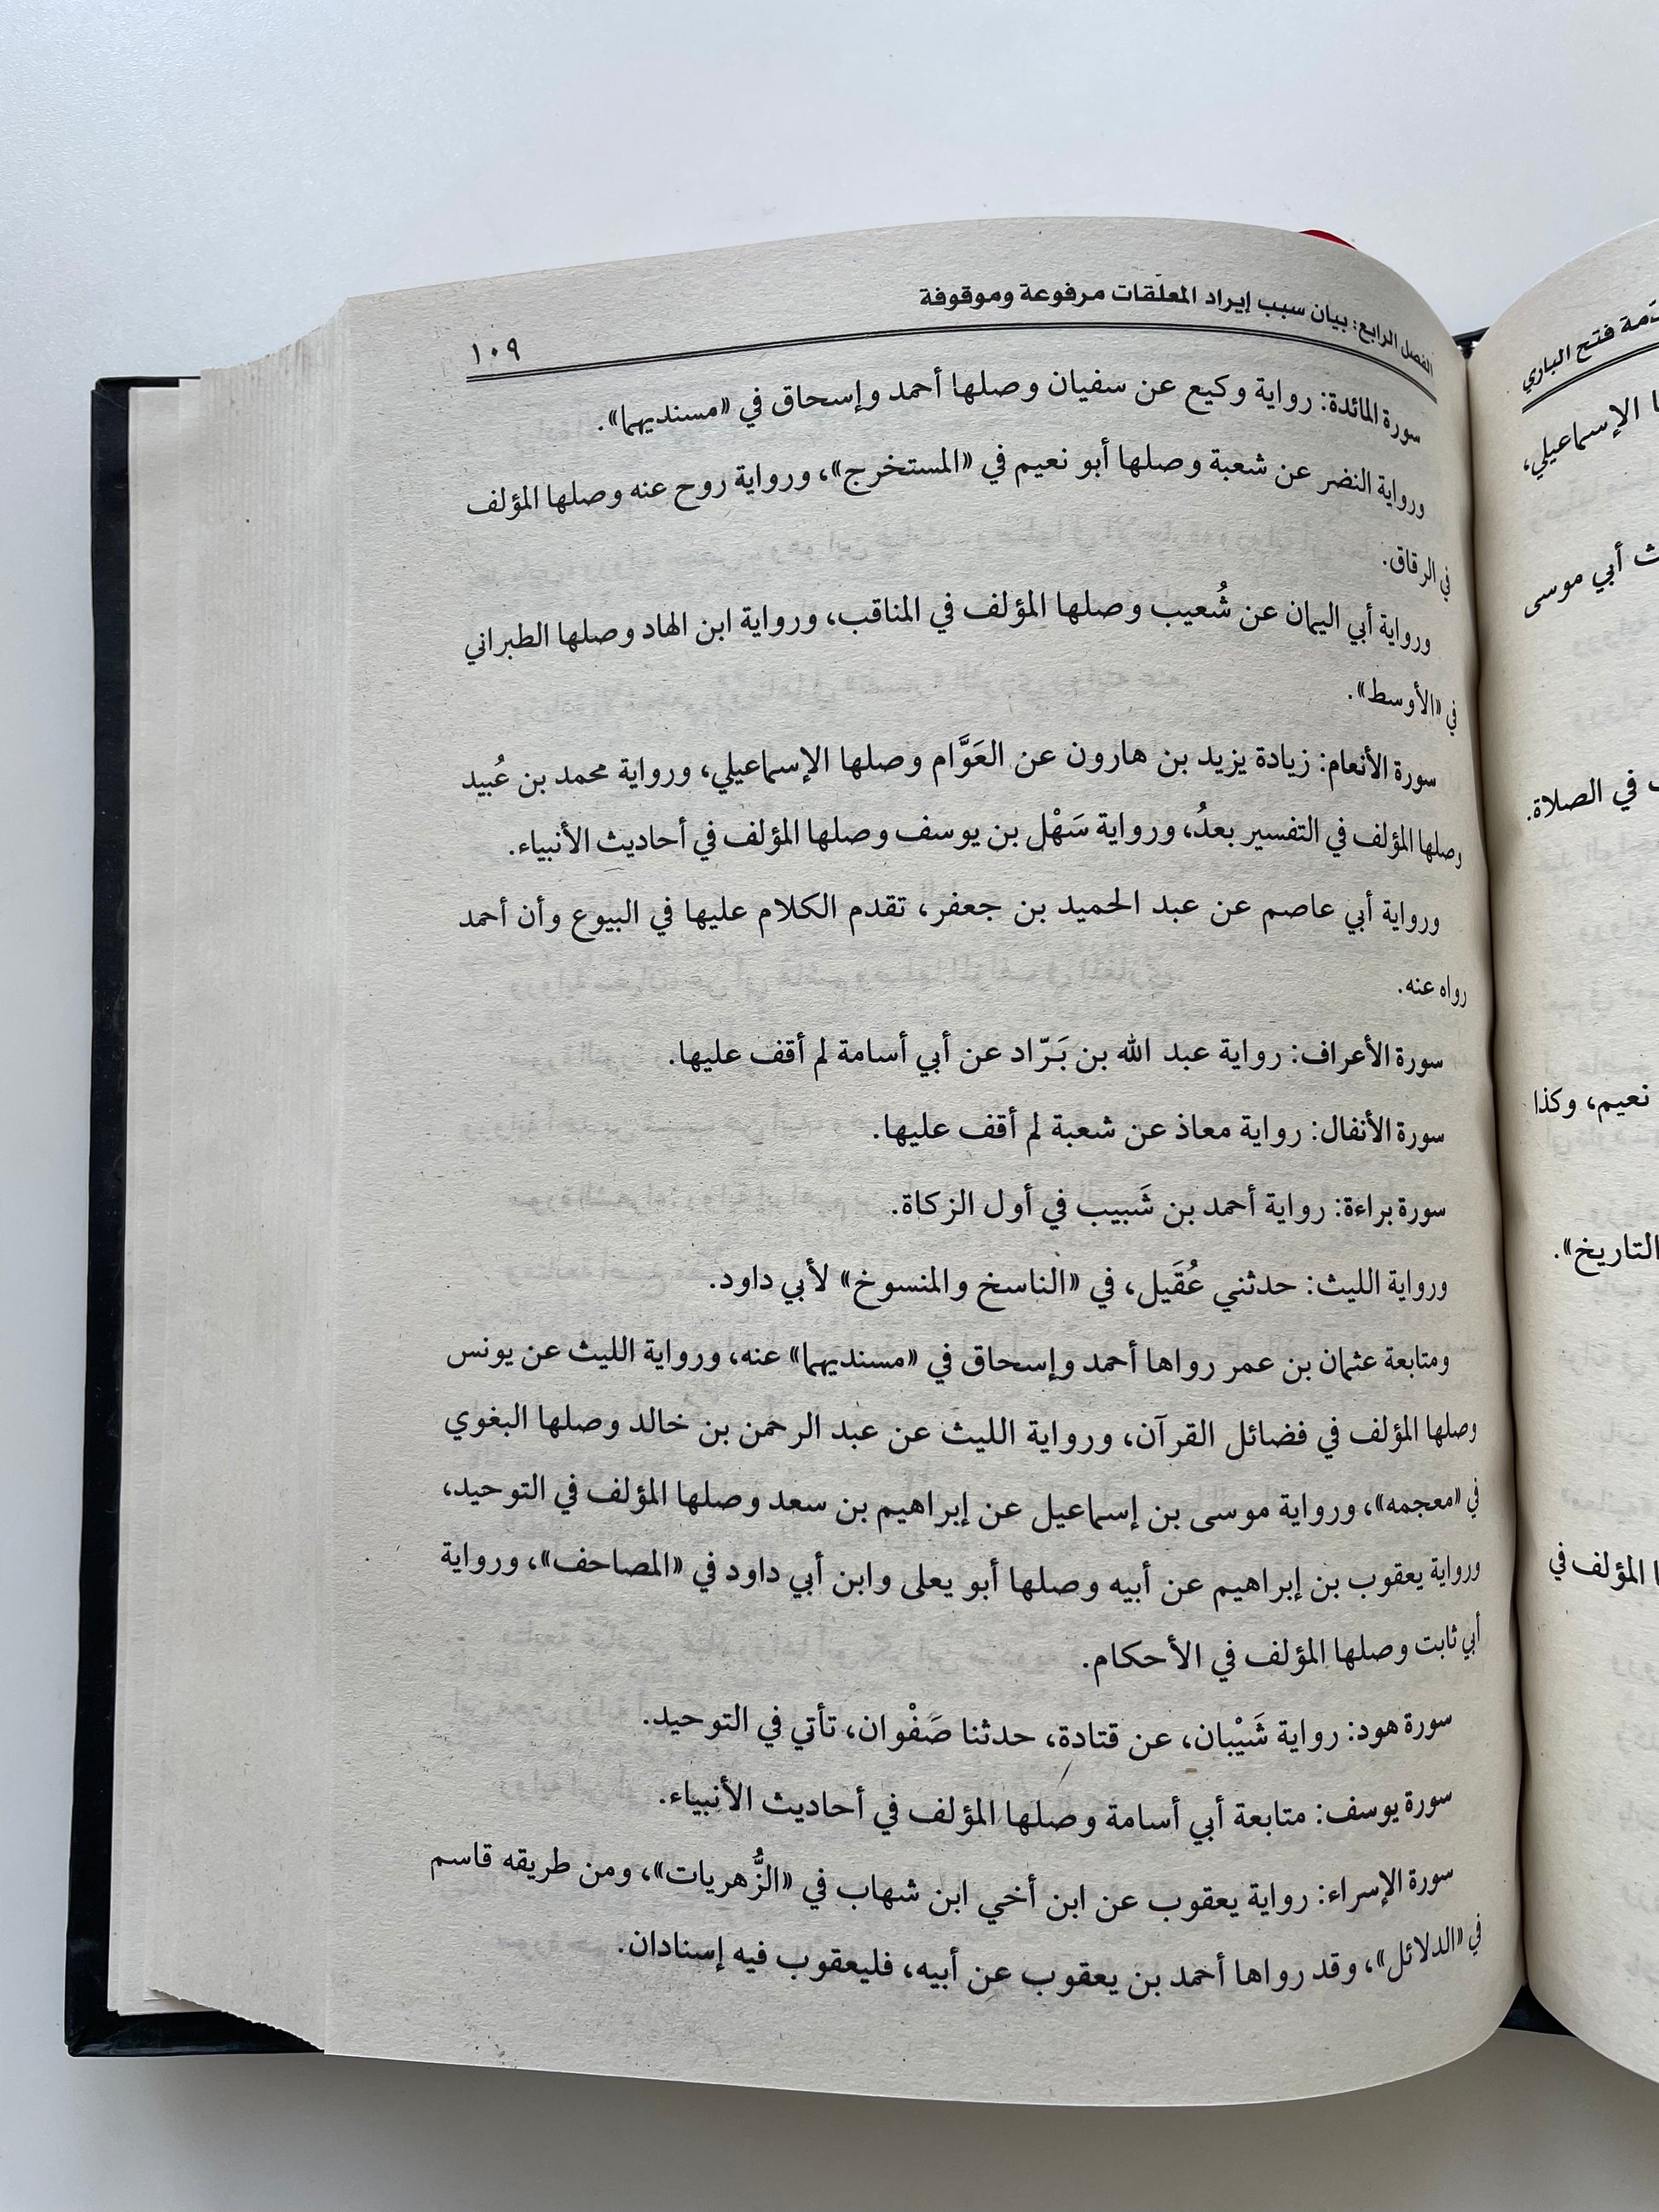 الفصل الرابع: بيان سبب إيراد المعلقات مرفوعة وموقوفة
١٠٩
سورة المائدة: رواية وكيع عن سفيان وصلها أحمد وإسحاق في «مسنديهما».
ورواية النضر عن شعبة وصلها أبو نعيم في «المستخرج»، ورواية روح عنه وصلها المؤلف
في الرقاق.
ورواية أبي اليمان عن شُعيب وصلها المؤلف في المناقب، ورواية ابن الهاد وصلها الطبراني
في «الأوسط».
سورة الأنعام: زيادة يزيد بن هارون عن العَوَّام وصلها الإسماعيلي، ورواية محمد بن عُبيد
وصلها المؤلف في التفسير بعدُ، ورواية سَهْل بن يوسف وصلها المؤلف في أحاديث الأنبياء.
ورواية أبي عاصم عن عبد الحميد بن جعفر، تقدم الكلام عليها في البيوع وأن أحمد
رواه عنه.
سورة الأعراف: رواية عبد الله بن بَرّاد عن أبي أسامة لم أقف عليها.
سورة الأنفال: رواية معاذ عن شعبة لم أقف عليها.
سورة براءة: رواية أحمد بن شَبيب في أول الزكاة.
ورواية الليث: حدثني عُقَيل، في «الناسخ والمنسوخ» لأبي داود.
ومتابعة عثمان بن عمر رواها أحمد وإسحاق في «مسنديهما» عنه، ورواية الليث عن يونس
وصلها المؤلف في فضائل القرآن، ورواية الليث عن عبد الرحمن بن خالد وصلها البغوي
في «معجمه»، ورواية موسى بن إسماعيل عن إبراهيم بن سعد وصلها المؤلف في التوحيد،
ورواية يعقوب بن إبراهيم عن أبيه وصلها أبو يعلى وابن أبي داود في «المصاحف»، ورواية
أبي ثابت وصلها المؤلف في الأحكام.
سورة هود: رواية شَيْبان، عن قتادة، حدثنا صَفْوان، تأتي في التوحيد.
سورة يوسف: متابعة أبي أسامة وصلها المؤلف في أحاديث الأنبياء.
سورة الإسراء: رواية يعقوب عن ابن أخي ابن شهاب في «الزُّهريات»، ومن طريقه قاسم
في «الدلائل»، وقد رواها أحمد بن يعقوب عن أبيه، فليعقوب فيه إسنادان.
فتح الباري
الإسماعيلي،
أبي موسى
في الصلاة.
نعيم، وكذا
التاريخ».
المؤلف في